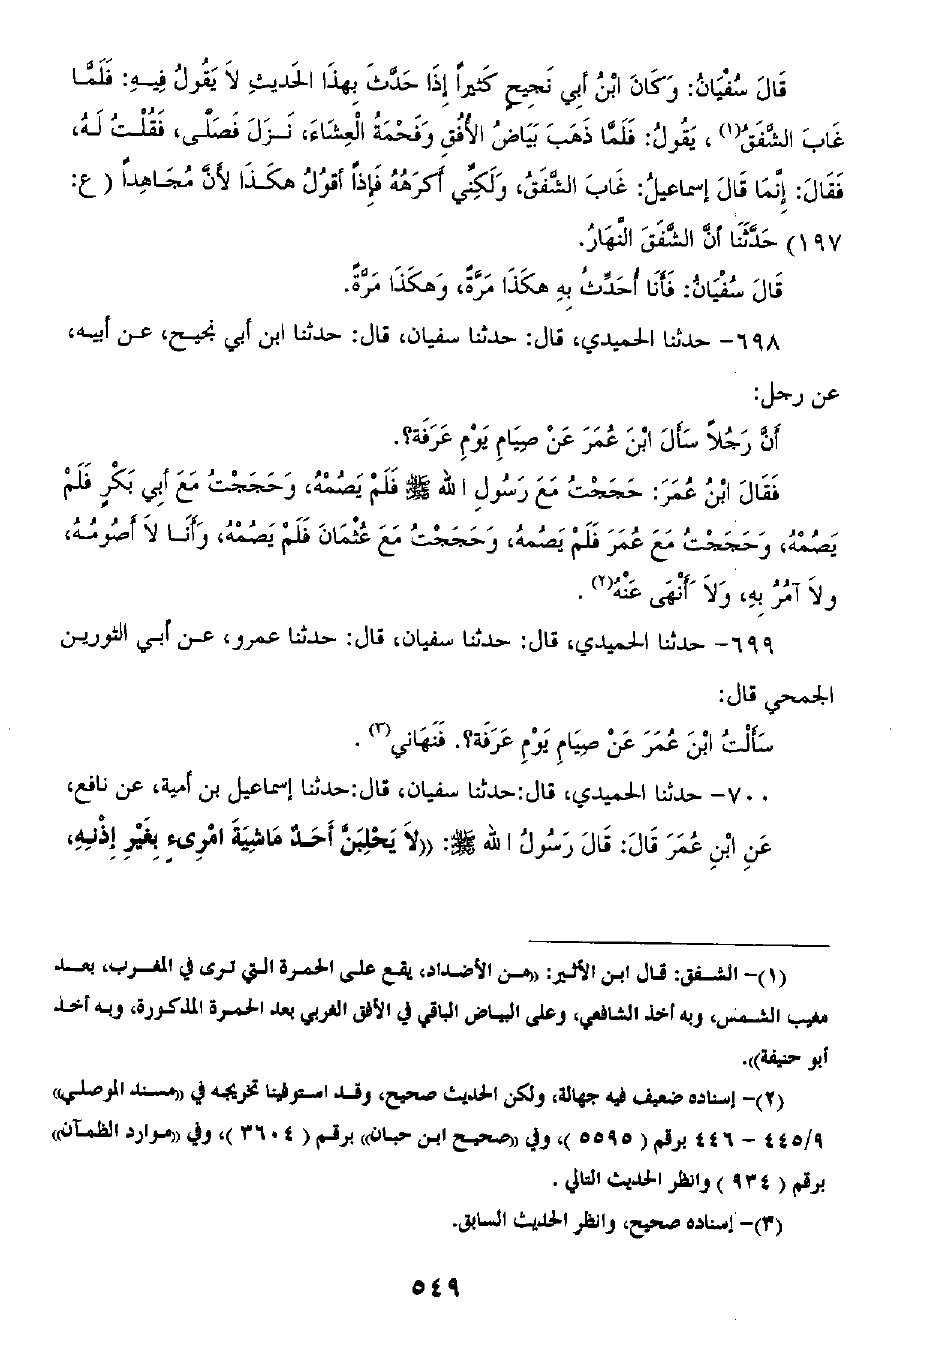 قَالَ سُفْيَانُ: وَكَانَ ابْنُ أَبِي نَجِيحٍ كَثِيراً إِذَا حَدَّثَ بِهذَا الحَديثِ لاَ يَقُولُ فِيهِ: فَلَمَّا
غَابَ الشَّفَقُ(١)، يَقُولُ: فَلَمَّا ذَهَبَ بَيَاضُ الأُفُقِ وَفَحْمَةُ الْعِشَاءَ، نَزَلَ فَصَلَّى، فَقُلْتُ لَهُ،
فَقَالَ: إِنَّمَا قَالَ إسماعيلُ: غَابَ الشَّفَقُ، وَلَكِنِّي أَكرَهُهُ فَإِذاً أَقولُ هكَذَا لأَنَّ مُجَاهِداً ( ع:
١٩٧) حَدَّثَنَا أَنَّ الشَّفَقَ النَّهَارُ.
قَالَ سُفْيَانُ: فَأَنَا أُحَدِّثُ بِهِ هكَذَا مَرَّةً، وَهكَذَا مَرَّةً.
٦٩٨- حدثنا الحميدي، قال: حدثنا سفيان، قال: حدثنا ابن أبي نجيح، عن أبيه،
عن رجل:
أَنَّ رَجُلاً سَأَلَ ابْنَ عُمَرَ عَنْ صِيَامِ يَوْمِ عَرَفَةَ؟.
فَقَالَ ابْنُ عُمَرَ: حَجَجْتُ مَعَ رَسُولِ الله ﷺ فَلَمْ يَصُمْهُ، وَحَجَجْتُ مَعَ أَبِي بَكْرٍ فَلَمْ
يَصُمْهُ، وَحَجَجْتُ مَعَ عُمَرَ فَلَمْ يَصُمهُ، وَحَجَجْتُ مَعَ عُثْمَانَ فَلَمْ يَصُمْهُ، وَأَنَا لاَ أَصُومُهُ،
ولاَ آمُرُ بِهِ، وَلاَ أَنْهَى عَنْهُ(٢).
٦٩٩- حدثنا الحميدي، قال: حدثنا سفيان، قال: حدثنا عمرو، عن أبي الثورين
الجمحي قال:
سَأَلْتُ ابْنَ عُمَرَ عَنْ صِيَامِ يَوْمِ عَرَفَةَ؟. فَنَهَاني(٣).
٧٠٠- حدثنا الحميدي، قال:حدثنا سفيان، قال:حدثنا إسماعيل بن أمية، عن نافع،
عَنِ ابْنِ عُمَرَ قَالَ: قَالَ رَسُولُ الله ﷺ: ((لاَ يَحْلِبَنَّ أَحَدٌ مَاشِيَةَ امْرِىءٍ بِغَيْرِ إِذْنِهِ،
(١)- الشفق: قال ابن الأثير: ((من الأضداد، يقع على الحمرة التي ترى في المغرب، بعد
مغيب الشمس، وبه أخذ الشافعي، وعلى البياض الباقي في الأفق الغربي بعد الحمرة المذكورة، وبه أخذ
أبو حنيفة)).
(٢)- إسناده ضعيف فيه جهالة، ولكن الحديث صحيح، وقد استوفينا تخريجه في ((مسند الموصلي))
٤٤٥/٩ - ٤٤٦ برقم ( ٥٥٩٥ )، وفي ((صحيح ابن حبان)) برقم ( ٣٦٠٤ )، وفي ((موارد الظمآن))
برقم ( ٩٣٤ ) وانظر الحديث التالي .
(٣)- إسناده صحيح، وانظر الحديث السابق.
٥٤٩